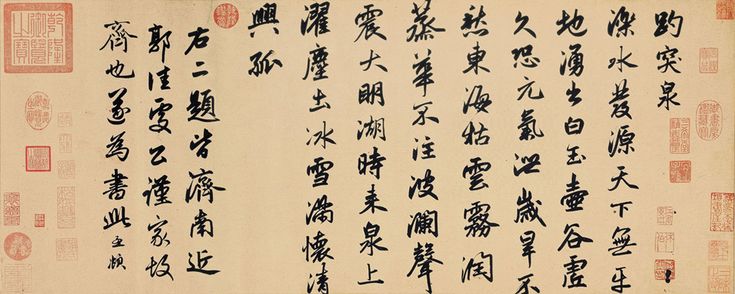 趵突泉
濼水發源天下無平
地湧出白玉壺谷虛
久恐元氣泄歲旱不
愁東海枯雲霧潤
蒸華不注波瀾聲
震大明湖時來泉上
濯塵土冰雪滿懷清
興孤
右二題皆濟南近
郭佳處公謹家故
齊也遂為書此孟頫
乾隆御覽之寶